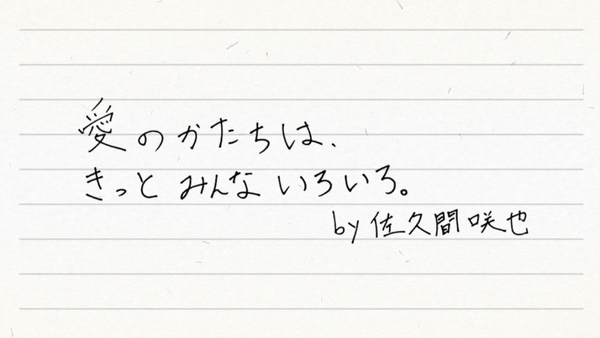 愛のかたちは、
きっと みんな いろいろ。
by 佐久間咲也